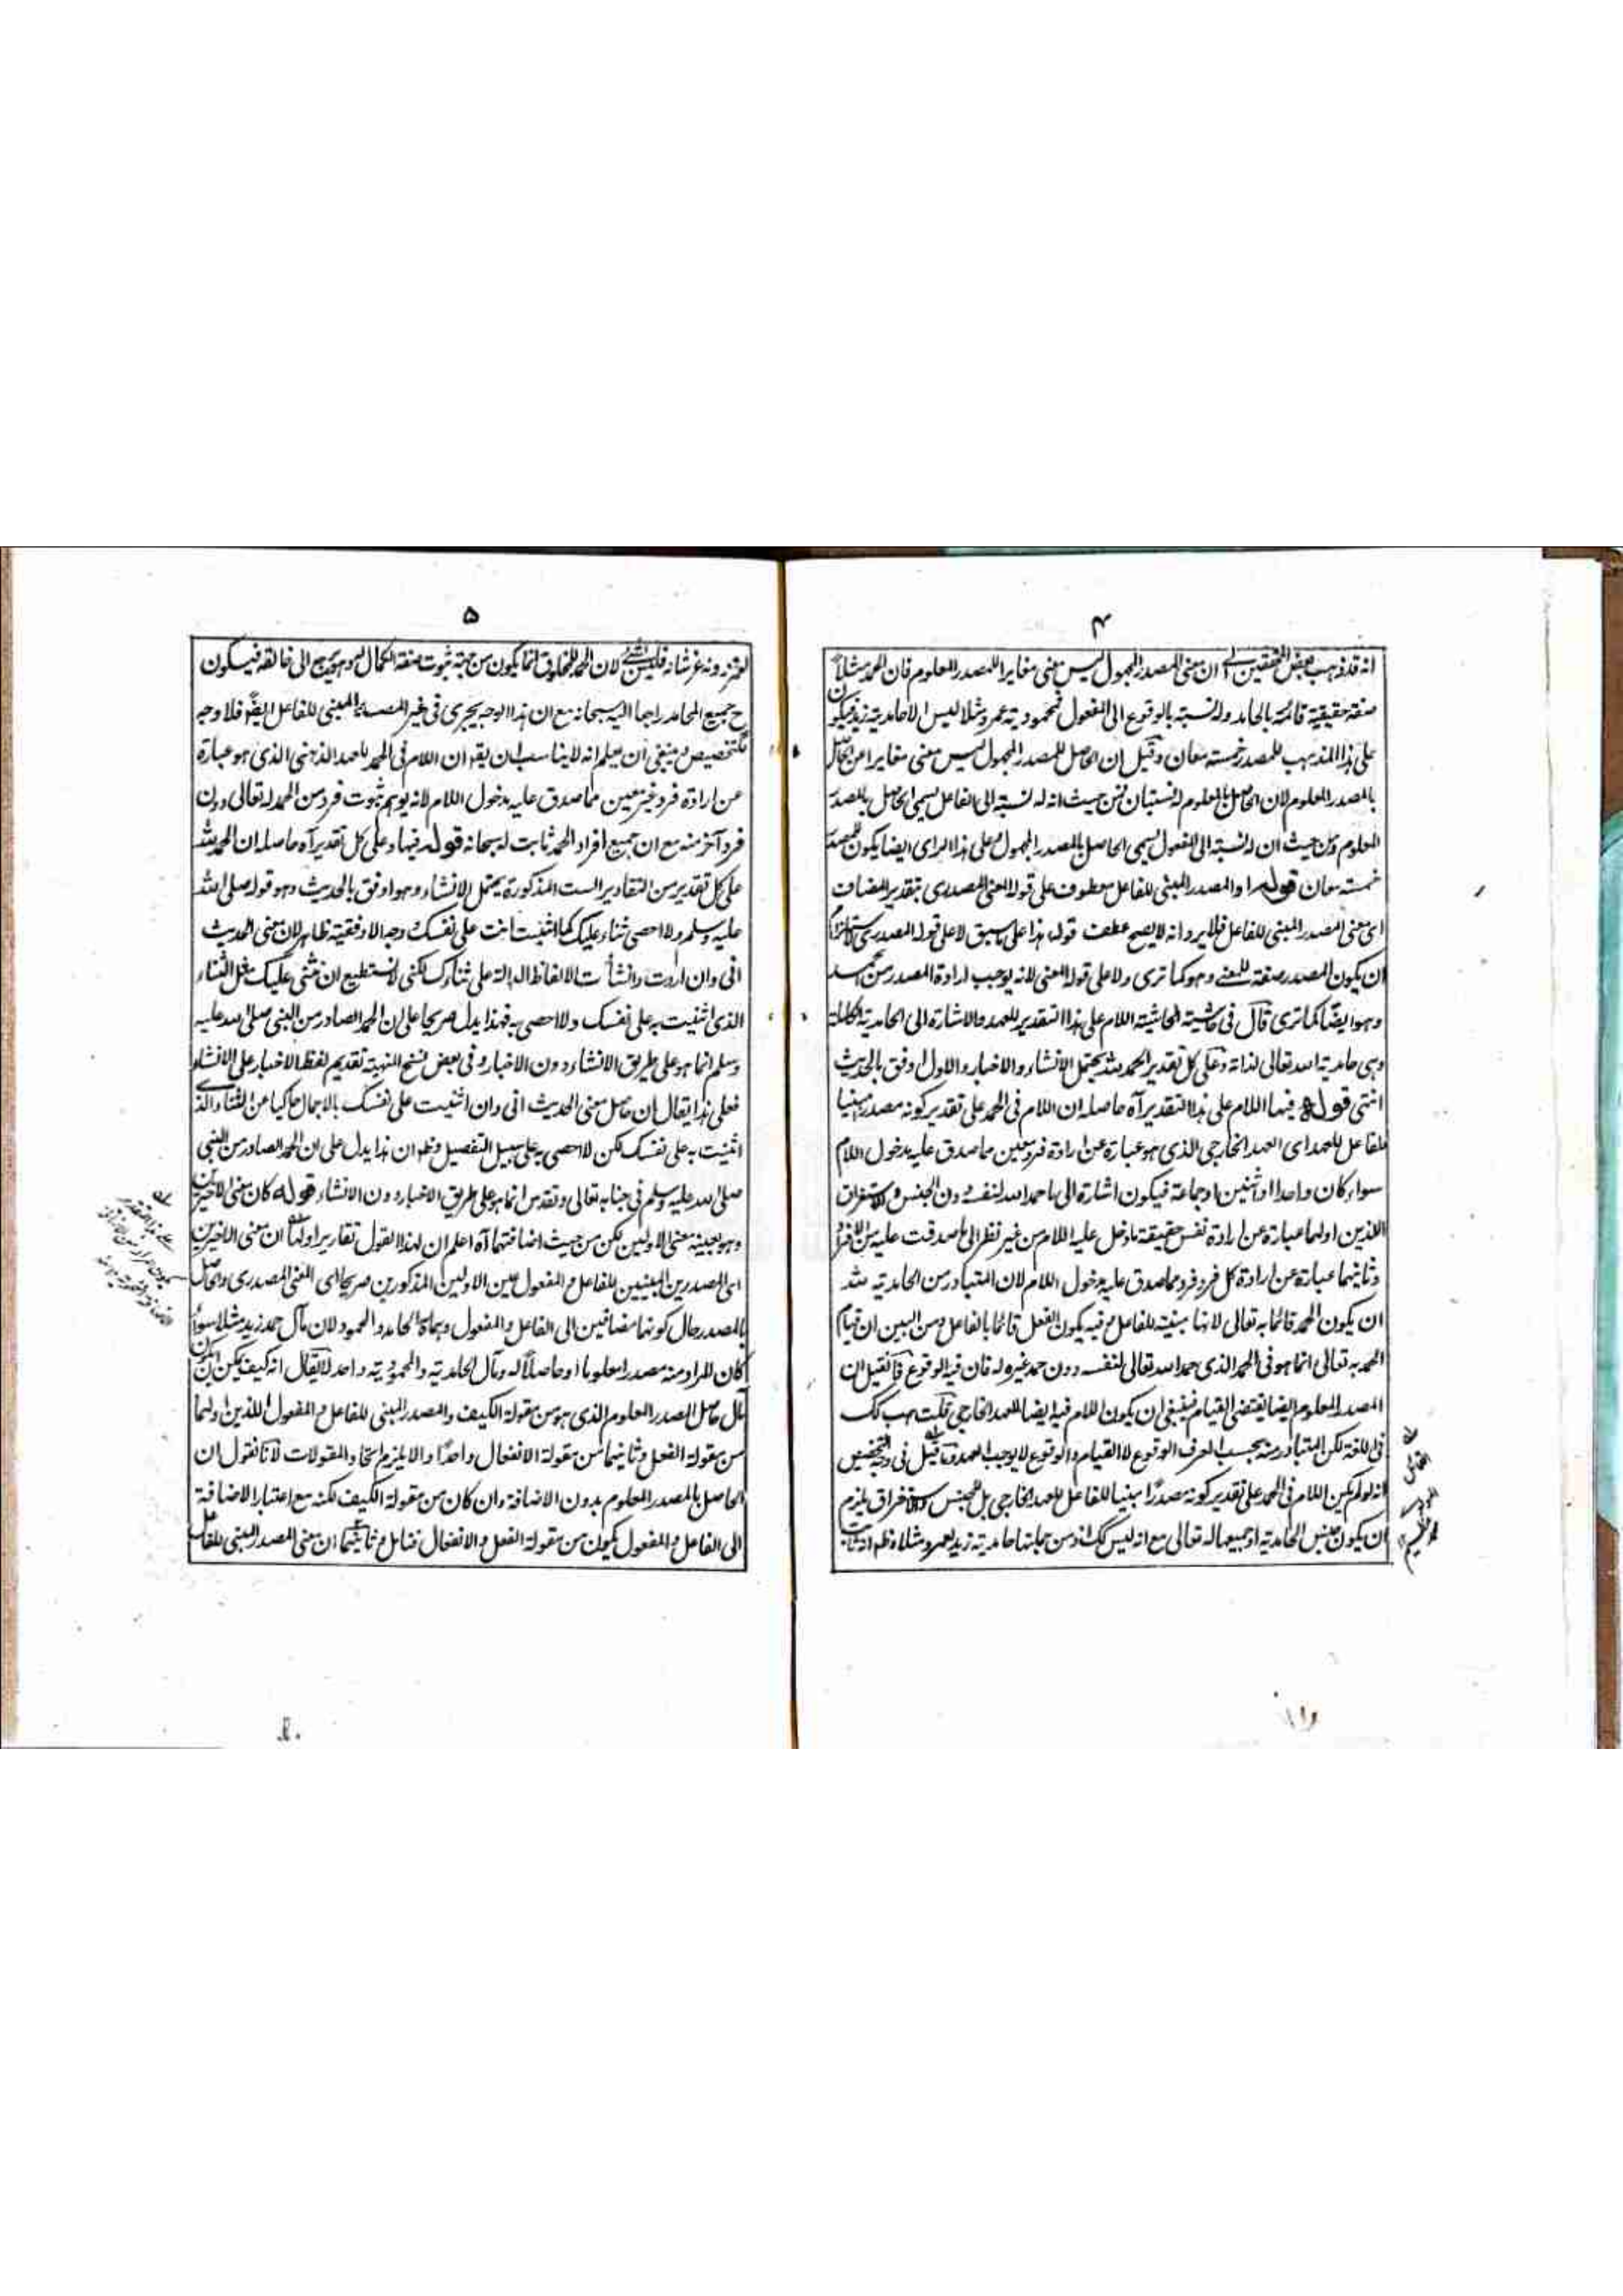 ۴
انه قد ذهب بعض المحققين الى ان معنى المصدر المجهول ليس معنى مغايرا للمصدر المعلوم فان الحمد مثلا
صفة حقيقية قائمة بالحامد وله نسبة بالوقوع الى المفعول فمحمودية عمرو مثلا ليس الا حامدية زيد فيكون
على هذا المذهب للمصدر خمسة معان وقيل ان الحاصل للمصدر المجهول ليس معنى مغايرا عن الحاصل
بالمصدر المعلوم لان الحاصل بالمعلوم له نسبتان فمن حيث انه له نسبة الى الفاعل يسمى الحاصل بالمصدر
المعلوم ومن حيث ان له نسبة الى المفعول يسمى الحاصل بالمصدر المجهول وعلى هذا الراى ايضا يكون للمصدر
خمسة معان قوله او المصدر المبنى للفاعل معطوف على قوله المعنى المصدرى بتقدير المضاف
اى معنى المصدر المبنى للفاعل فلا يرد انه لا يصح عطف قوله هذا على ما سبق لا على قوله المصدرى لاستلزامه
ان يكون المصدر صفة للمعنى وهو كما ترى ولا على قوله المعنى لانه يوجب ارادة المصدر من الحمد
وهو ايضا كما ترى قال فى حاشية الحاشية اللام على هذا التقدير للعهد والاشارة الى الحامدية الكاملة
وهى حامدية الله تعالى لذاته وعلى كل تقدير الحمد لله يحتمل الانشاء والاخبار والاول اوفق بالحديث
انتهى قوله فيها اللام على هذا التقدير آه حاصله ان اللام فى الحمد على تقدير كونه مصدرا مبنيا
للفاعل للعهد اى العهد الخارجى الذى هو عبارة عن ارادة فرد معين مما صدق عليه مدخول اللام
سواء كان واحدا او اثنين او جماعة فيكون اشارة الى ما حمد الله لنفسه دون الجنس والاستغراق
اللذين اولهما عبارة عن ارادة نفس حقيقة ما دخل عليه اللام من غير نظر الى ما صدقت عليه من الافراد
وثانيهما عبارة عن ارادة كل فرد فرد مما صدق عليه مدخول اللام لان المتبادر من الحامدية لله
ان يكون الحمد قائما به تعالى لانها مبنية للفاعل وفيه يكون الفعل قائما بالفاعل ومن البين ان قيام
الحمد به تعالى انما هو فى الحمد الذى حمد الله تعالى لنفسه دون حمد غيره له فان فيه الوقوع فان قيل ان
المصدر المعلوم ايضا يقتضى القيام فينبغى ان يكون اللام فيه ايضا للعهد الخارجى قلت هب كك
فى اللغة لكن المتبادر منه بحسب العرف الوقوع لا القيام والوقوع لا يوجب العهد وما قيل فى وجه التخصيص
انه لو لم يكن اللام فى الحمد على تقدير كونه مصدرا مبنيا للفاعل للعهد الخارجى بل للجنس والاستغراق يلزم
ان يكون جنس الحامدية او جميعها له تعالى مع انه ليس كك اذ من جملتها حامدية زيد لعمرو مثلا وظ انه ثابت
۵
لعمرو دونه عز شانه فليس لان الحمد للمخلوق انما يكون من جهة ثبوت صفة الكمال له وهو يرجع الى خالقه فيكون
ح جميع المحامد راجعا اليه سبحانه مع ان هذا الوجه يجرى فى غير المصدر المبنى للفاعل ايضا فلا وجه
للتخصيص وينبغى ان يعلم انه لا يناسب ان يقه ان اللام فى الحمد للعهد الذهنى الذى هو عبارة
عن ارادة فرد غير معين مما صدق عليه مدخول اللام لانه يوهم ثبوت فرد من الحمد له تعالى دون
فرد آخر منه مع ان جميع افراد الحمد ثابت له سبحانه قوله فيها وعلى كل تقدير آه حاصله ان الحمد لله
على كل تقدير من التقادير الست المذكورة يحتمل الانشاء وهو اوفق بالحديث وهو قوله صلى الله
عليه وسلم ولا احصى ثناء عليك كما اثنيت انت على نفسك وجه الاوفقية ظاهر لان معنى الحديث
انى وان اردت وانشأت الالفاظ الدالة على ثنائك لكنى لا نستطيع ان نثنى عليك مثل الثناء
الذى اثنيت به على نفسك ولا احصى به فهذا يدل صريحا على ان الحمد الصادر من النبى صلى الله عليه
وسلم انما هو على طريق الانشاء دون الاخبار وفى بعض نسخ المنهية تقديم لفظ الاخبار على الانشاء
فعلى هذا يقال ان حاصل معنى الحديث انى وان اثنيت على نفسك بالاجمال حاكيا عن الثناء الذى
اثنيت به على نفسك لكن لا احصى به على سبيل التفصيل وظ ان هذا يدل على ان الحمد الصادر من النبى
صلى الله عليه وسلم فى جنابه تعالى وتقدس انما هو على طريق الاخبار دون الانشاء قوله كان معنى الاخيرين
وهو بعينه معنى الاولين لكن من حيث اضافتهما آه اعلم ان لهذا القول تقارير اولها ان معنى الاخيرين
اى المصدرين المبنيين للفاعل والمفعول عين الاولين المذكورين صريحا اى المعنى المصدرى والحاصل
بالمصدر حال كونهما مضافين الى الفاعل والمفعول وهما الحامد والمحمود لان مآل حمد زيد مثلا سواء
كان المراد منه مصدرا معلوما او حاصلا له ومآل الحامدية والمحمودية واحد لا يقال انه كيف يمكن ان يكون
مآل حاصل المصدر المعلوم الذى هو من مقولة الكيف والمصدر المبنى للفاعل والمفعول اللذين اولهما
من مقولة الفعل وثانيهما من مقولة الانفعال واحدا والا يلزم اتحاد المقولات لانا نقول ان
الحاصل بالمصدر المعلوم بدون الاضافة وان كان من مقولة الكيف لكنه مع اعتبار الاضافة
الى الفاعل والمفعول يكون من مقولة الفعل والانفعال فتامل وثانيهما ان معنى المصدر المبنى للفاعل